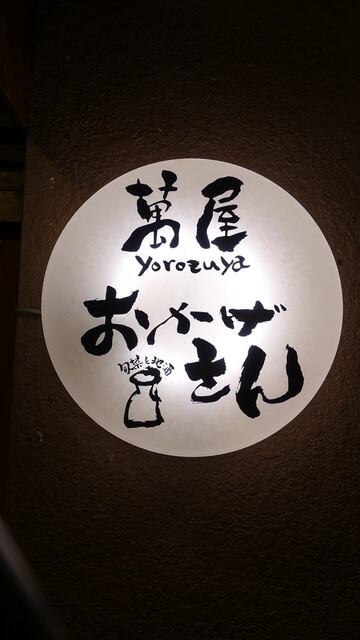 萬屋
yorozuya
おかげ
さん
旬菜と地酒